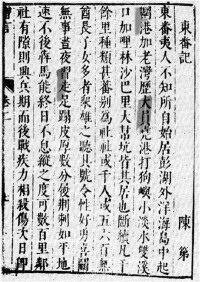 東番記
陳第
東番夷人不知所自始居彭湖外洋海島中起
魍港加老灣歷大員堯港打狗嶼小淡水雙溪
口加哩林沙巴里大幫坑皆其居也斷續凡千
餘里種類甚蕃別為社社或千人或五六百無
酋長子女多者眾雄之聽其號令性好勇喜鬪
無事晝夜習走足蹋皮厚數分履荊刺如平地
速不後犇馬能終日不息縱之度可數百里鄰
社有隙則興兵期而後戰疾力相殺傷次日即